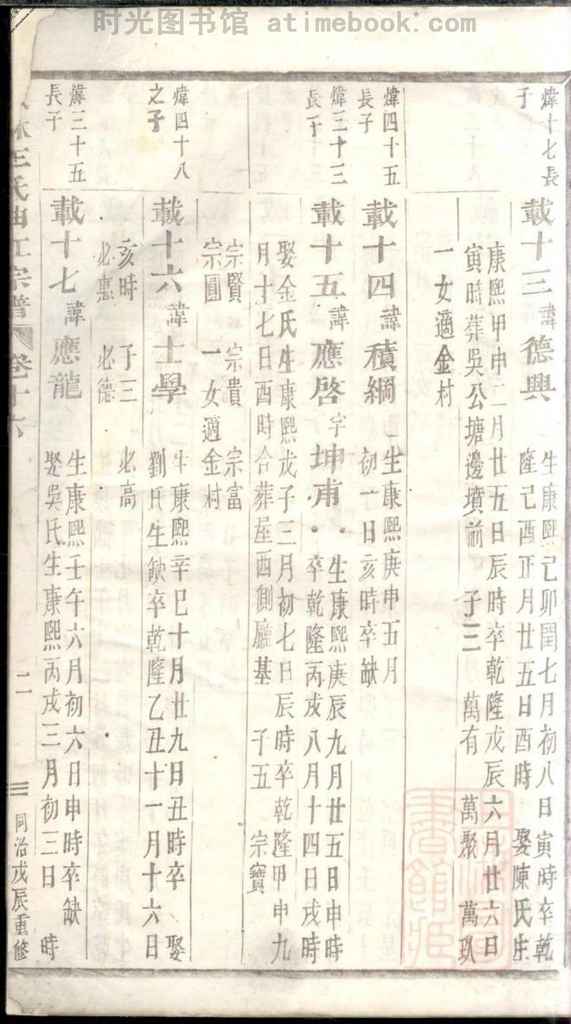 时光图书馆 atimebook.com
煒十七長
子
載十三諱德興
生康熙己卯閏七月初八日寅時卒乾
隆己酉正月廿五日酉時 娶陳氏生
康熙甲申二月廿五日辰時卒乾隆戊辰六月廿六日
寅時葬吳公塘邊墳前 子三 萬有 萬聚 萬玖
一女適金村
煒四十五
長子
載十四諱積綱
生康熙庚申五月
初一日亥時卒缺
煒三十三
長子
載十五諱應啓字坤甫
生康熙庚辰九月廿五日申時
卒乾隆丙戌八月十四日戌時
娶金氏生康熙戊子三月初七日辰時卒乾隆甲申九
月十七日酉時合葬屋西側廳基 子五 宗寶
宗賢 宗貴 宗富
宗圓 一女適金村
煒四十八
之子
載十六諱士學
生康熙辛巳十月廿九日丑時卒 娶
劉氏生缺卒乾隆乙丑十一月十六日
亥時 子三 必高
必惠 必德
煒三十五
長子
載十七諱應龍
生康熙壬午六月初六日申時卒缺
娶吳氏生康熙丙戌三月初三日 時
王氏由江宗譜 卷十六 二 同治戊辰重修